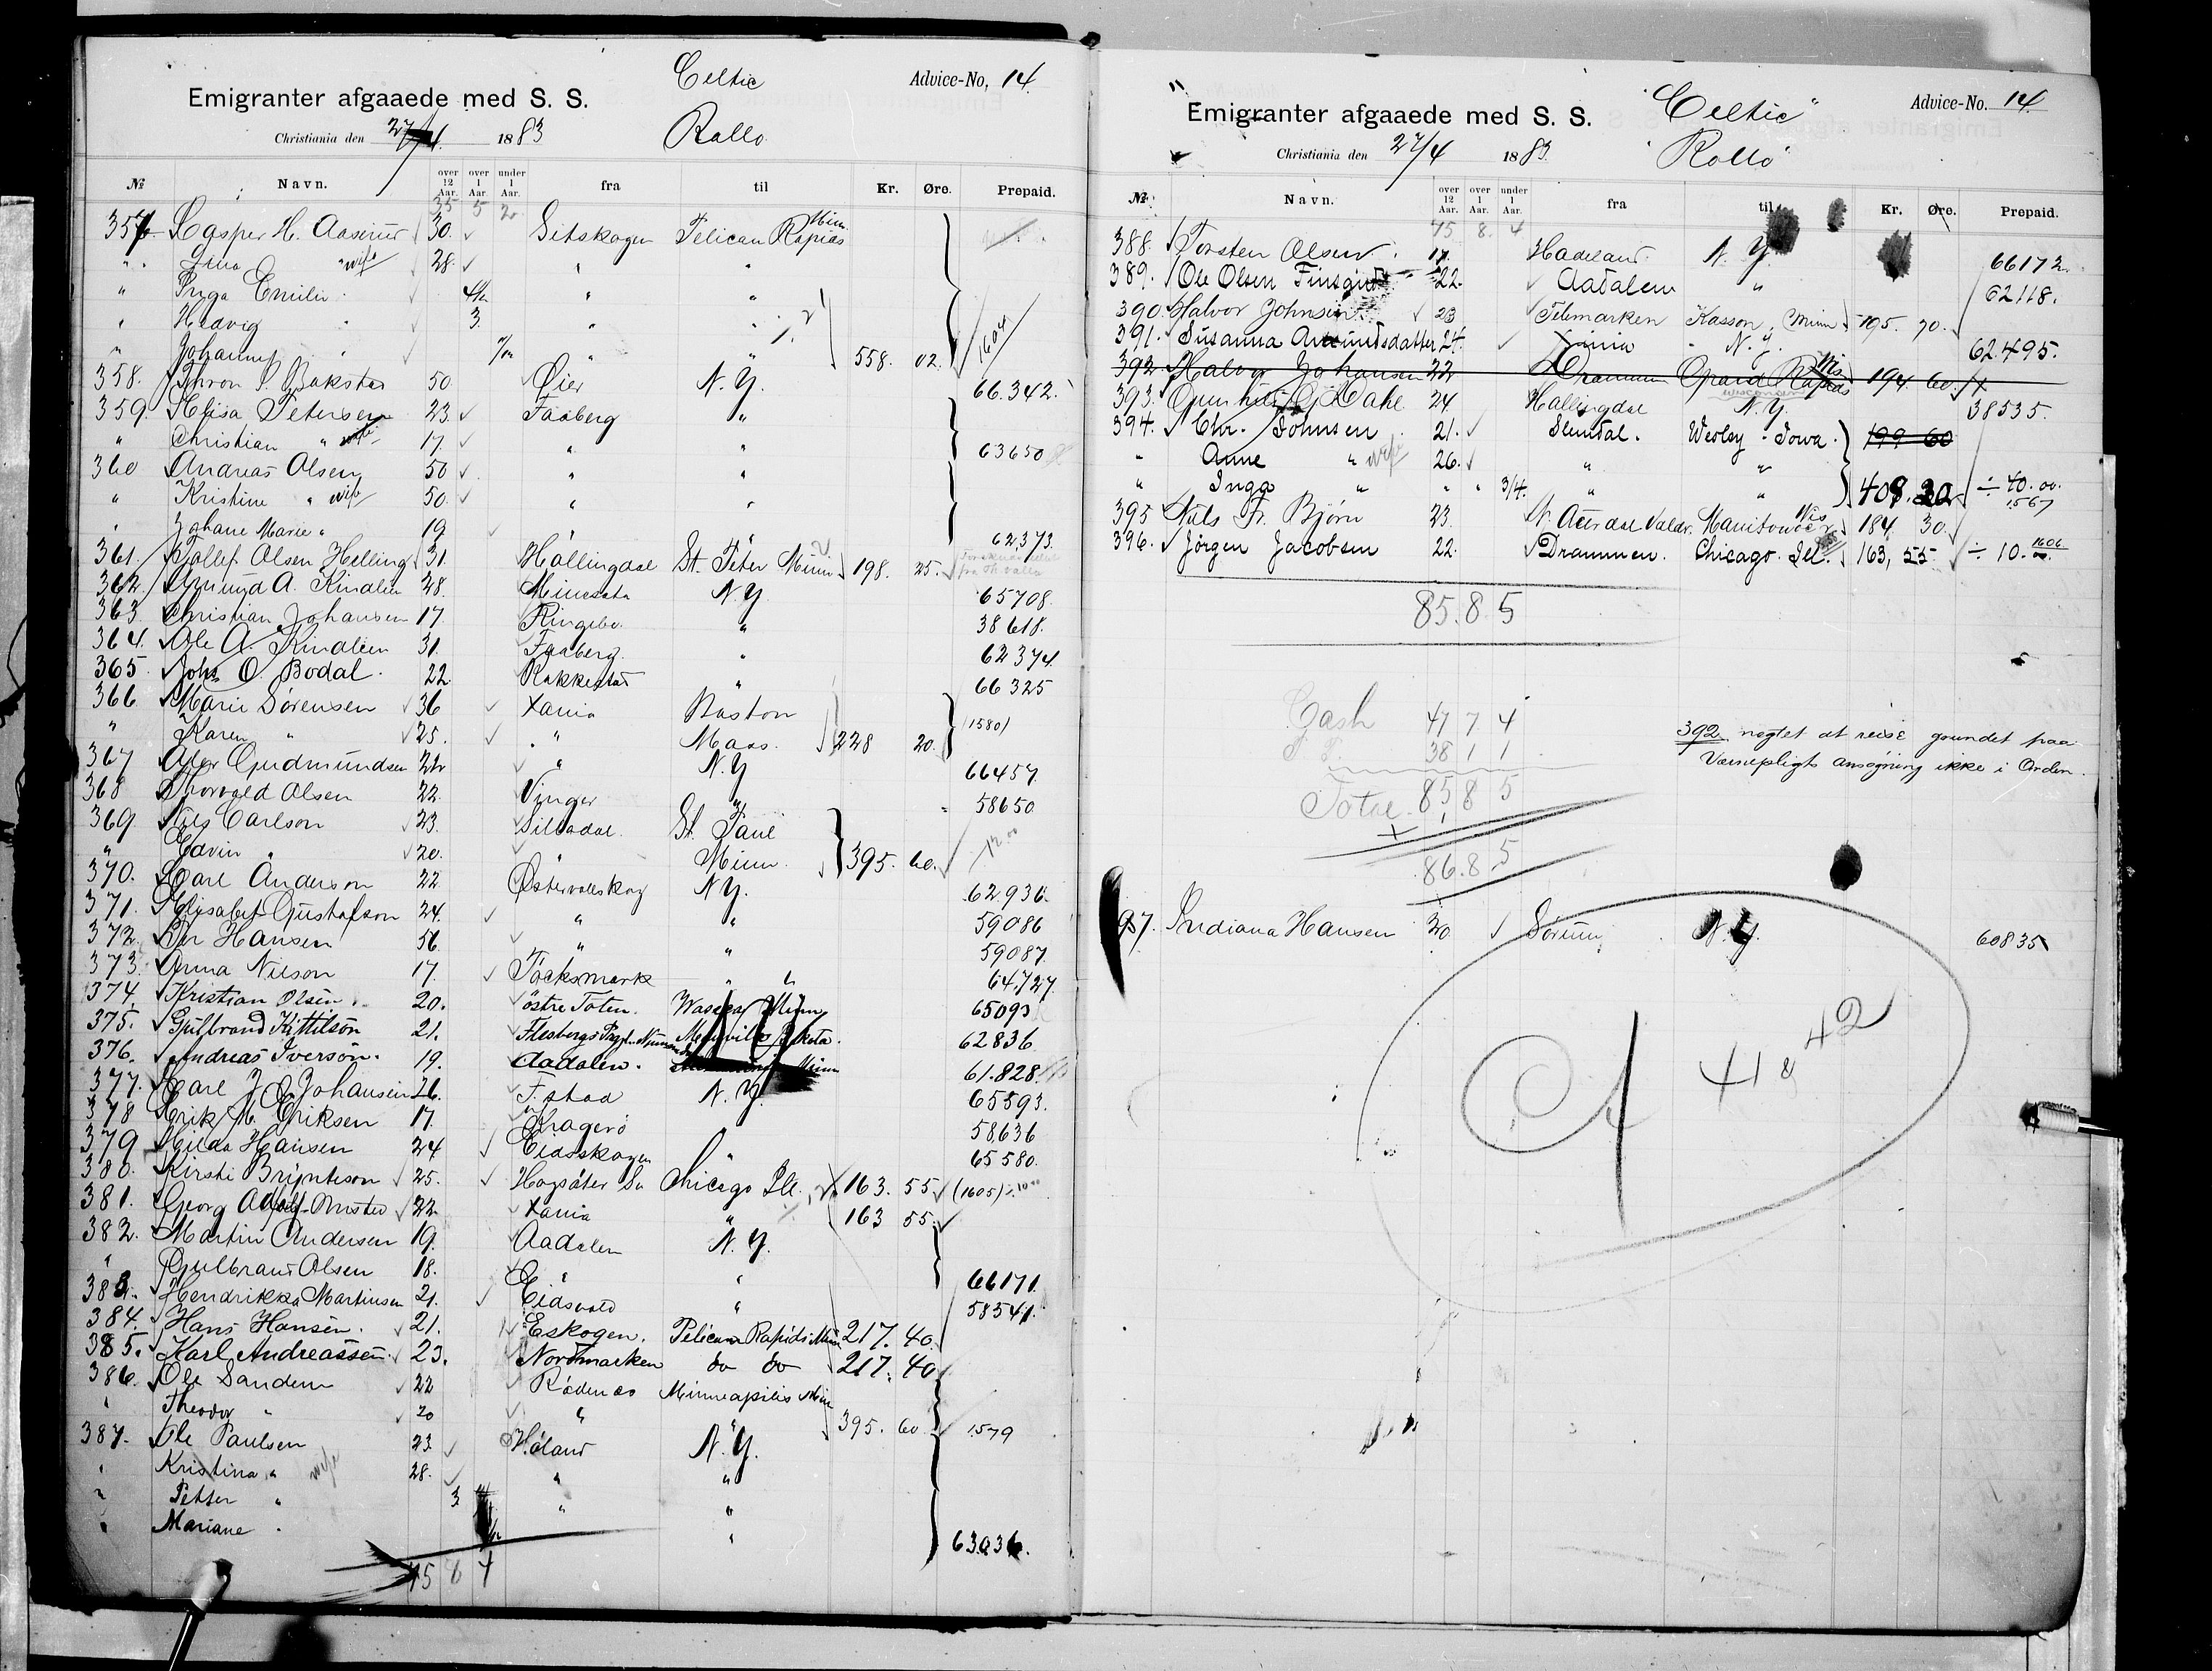 Celtic
Advice-No, 14.
Emigranter afgaaede med S. S.
Christiania den 27/4. 1883
Rollo
№ Navn. over 12 Aar. over 1 Aar. under 1 Aar. fra til Kr. Øre. Prepaid.
35 5 2
357 Casper H. Aaserud 30. Sitskogen Pelican Rapids Minn
" " wife 28. " "
" Inga Emilie " "
" Hedvig " 3. " "
" Johannes " " " 558. 02. 1604
358. Thron P. Bakstad 50 Øier N. Y. 66.342.
359. Elisa Petersen 23 Faaberg "
" Christian " 17. " " 63650
360 Andreas Olsen 50 " "
" Kristine " wife 50. " "
" Johane Marie " 19 " " 62373.
361. Tollef Olsen Helling 31. Hallingdal St. Peter Minn 198. 25.
362. A. Kindlie 28. Minesota N. Y. 65708.
363. Christian Johansen 17. Ringebo " 38618.
364. Ole A. Kindlien 31. Faaberg. " 62374.
365. Johs O. Bodal. 22. Rakkestad " 66325
366 Marie Sørensen 36 Xania Boston
" Karen " 25. " Mass. 228 20. (1580)
367 Gudmundsen 22 " N. Y 66457
368 Thorvald Olsen 22. Vinger " 58650
369. Nils Carlson 23. Silbodal. St. Paul
" Edvin " 20. " Minn. 395. 60. 12.00
370. Carl Anderson 22 Østervallskog N. Y. 62.936.
371. Elisabet Gustafson 24. " " 59086
372 Per Hansen 56 " " 59087.
373. Anna Nilson 17. Töcksmark " 64,727.
374. Kristian Olsen. 20. östre Toten. Waseca Minn 65093
375. Gulbrand Kittilson 21. Flesbergs Prgj. Numedal Dakota. 62836
376. Andreas Iversön. 19. Aadalen. Minn 61.828
377. Carl J. Johansen 26. F. stad N. Y. 65593.
378 Erik M. Eriksen 17. Kragerö 58,636
379 Hilda Hansen 24 Eidsskogen " 65580.
380. Kirsti Brynteson 25. Hogsäter Sv Chicago Ill. 163. 55 (1605)
381. Georg Adolf Onsted 22 Xania " 163 55.
382. Martin Andersen 19. Aadalen N. Y.
" Gulbrand Olsen 18. " " 66171.
383. Hendrikka Martinsen 21. Eidsvold " 58541.
384. Hans Hansen. 21. Eskogen. Pelican Rapids Minn 217. 40.
385. Karl Andreassen. 23. Nordmarken do do 217. 40
386. Ole Sandem 22 Rödenæs Minneapolis Minn
" Theodor " 20 " " 395. 60 1579
387. Ole Paulsen 23 Höland N. Y.
" Kristina " wife 28. " "
" Petter " 3 " "
" Mariane " " 63036.
75 8 4
"Celtic"
Advice-No. 14
Emigranter afgaaede med S. S.
Christiania den 27/4 1883.
"Rollo"
№ Navn. over 12 Aar. over 1 Aar. under 1 Aar. fra til Kr. Øre. Prepaid.
75 8. 4
388. Torsten Olsen 17. Hadeland. N. Y. 66172.
389. Ole Olsen 22. Aadalen " 62118.
390. Halvor Johnsen 23 Telemarken Kasson, Minn 195. 70.
391. Susanna Amundsdatter 24. Xania N. Y. 62.495.
392. Halvor Johansen 22 Drammen Grand Rapids Wis. Wisconsin 194 60.
393. Dahl 24 Hallingdal N. Y. 38535.
394. Chr. Johnsen 21. Slemdal. Wesley Iowa. 199 60
" Anne " wife 26. " "
" Inga " 3/4. " " 408. 20 ÷ 40.00. 1567
395 Nils Fr. Bjørn 23. N. Aurdal Valdr. Manitowoc Wis 184. 30.
396. Jørgen Jacobsen 22. Drammen. Chicago. Ill. 163, 55 ÷ 10. 1606
85. 8 5
Cash 47 7 4
P. P. 38 1 1
Total 85 8 5
1
86. 8. 5
392 nogtet at reise grundet paa
Værnepligts ansøgning ikke i Orden.
97. Indiana Hansen 30 Sörum N. Y. 60835